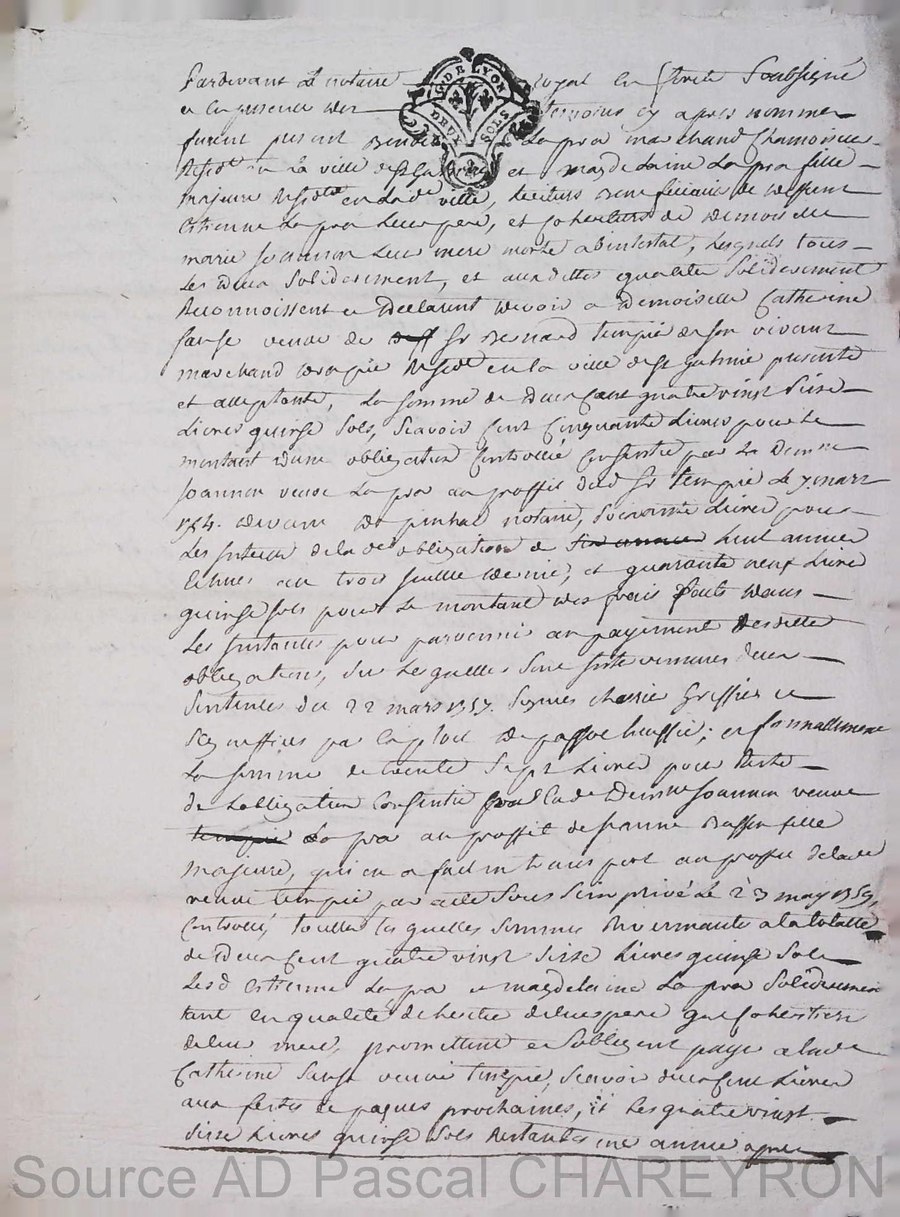 Pardevant le notaire royal en forets Soubsigné
et en presence des temoins cy apres nommer
GDE LYON
DEUX SOLS
furent presents Lapra marchand Chamoiseur
Resid.t en la ville de St Galmier et magdelaine Lapra fille
majeure Resid.te en lad.e ville, heritiers beneficiaire de deffunt
Estienne Lapra leur pere, et Coheritiers de Demoiselle
marie Joannon leur mere morte abintestat, lesquels tous
les deux Solidairement, et auxdittes qualités Solidairement
Reconnoissent et Declarent devoir a Demoiselle Catherine
veuve de Sr Bernard tempié de son vivant
marchand drapié Resid.t en la ville de St Galmié presente
et acceptante, la somme de Deux Cent quatre vingt Seize
Livres quinze Sols, Scavoir Cent Cinquante Livres pour le
montant D'une obligation Controllé Consentie par la Dem.lle
Joannon veuve Lapra au proffit dud. Sr tempié le 7. mars
1754. devant Depinhac notaire, Soixante Livres pour
les Interets de lad.e obligation de huit années
Echues au trois juillet dernié, et quarante neuf Livre
quinze Sols pour le montant des frais faits dans
les Instances pour parvenir au payement desditte
obligation, Sur lesquelles Sont Intervenues deux
Sentences du 22 mars 1757. Signés Greffier et
Signiffiés par Exploit de huissié; et finnallement
La somme de trente Sept Livres pour Reste
de L'obligation Consentie par lad.e Dem.lle Joannon veuve
Lapra au proffit de Jeanne fille
majeure, qui en a fait transport au proffit de lad.e
veuve tempié par acte Sous Seing privé le 23 may 1759,
Controllé, touttes lesquelles sommes Revenante a la totalité
de Deux Cent quatre vingt Seize Livres quinze Sols
Lesd. Estienne Lapra et magdelaine Lapra Solidairement
tant En qualité de heritié de leur pere que Coheritiers
de leur mere, promettent et S'obligent payer a lad.e
Catherine veuve tempié, Scavoir deux Cent Livres
aux fertes de paques prochaines, et les quatre vingt
Seize Livres quinze Sols Restantes une année apres
Source AD Pascal CHAREYRON